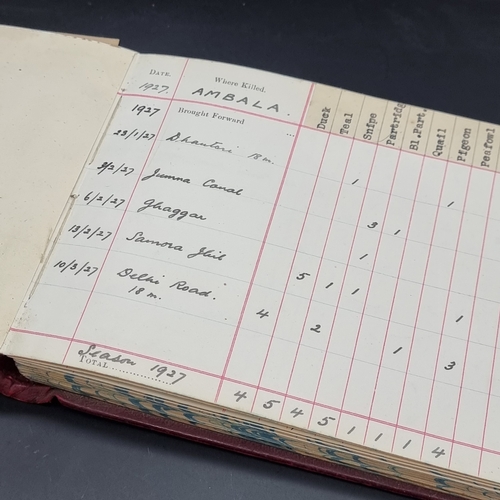 DATE. Where Killed.
1927. AMBALA.
Duck Teal Snipe Partridge Bl.Part. Quail Pigeon Peafowl
1927 Brought Forward ...
23/1/27 Dhantori 18 m. 1 1
3/2/27 Jumna Canal 3 1
6/2/27 Ghaggar 1
13/2/27 Samora Jhil 5 1 1
10/3/27 Delhi Road. 4 2 1
18 m. 1 3
Season 1927
TOTAL 4 5 4 5 1 1 1 4